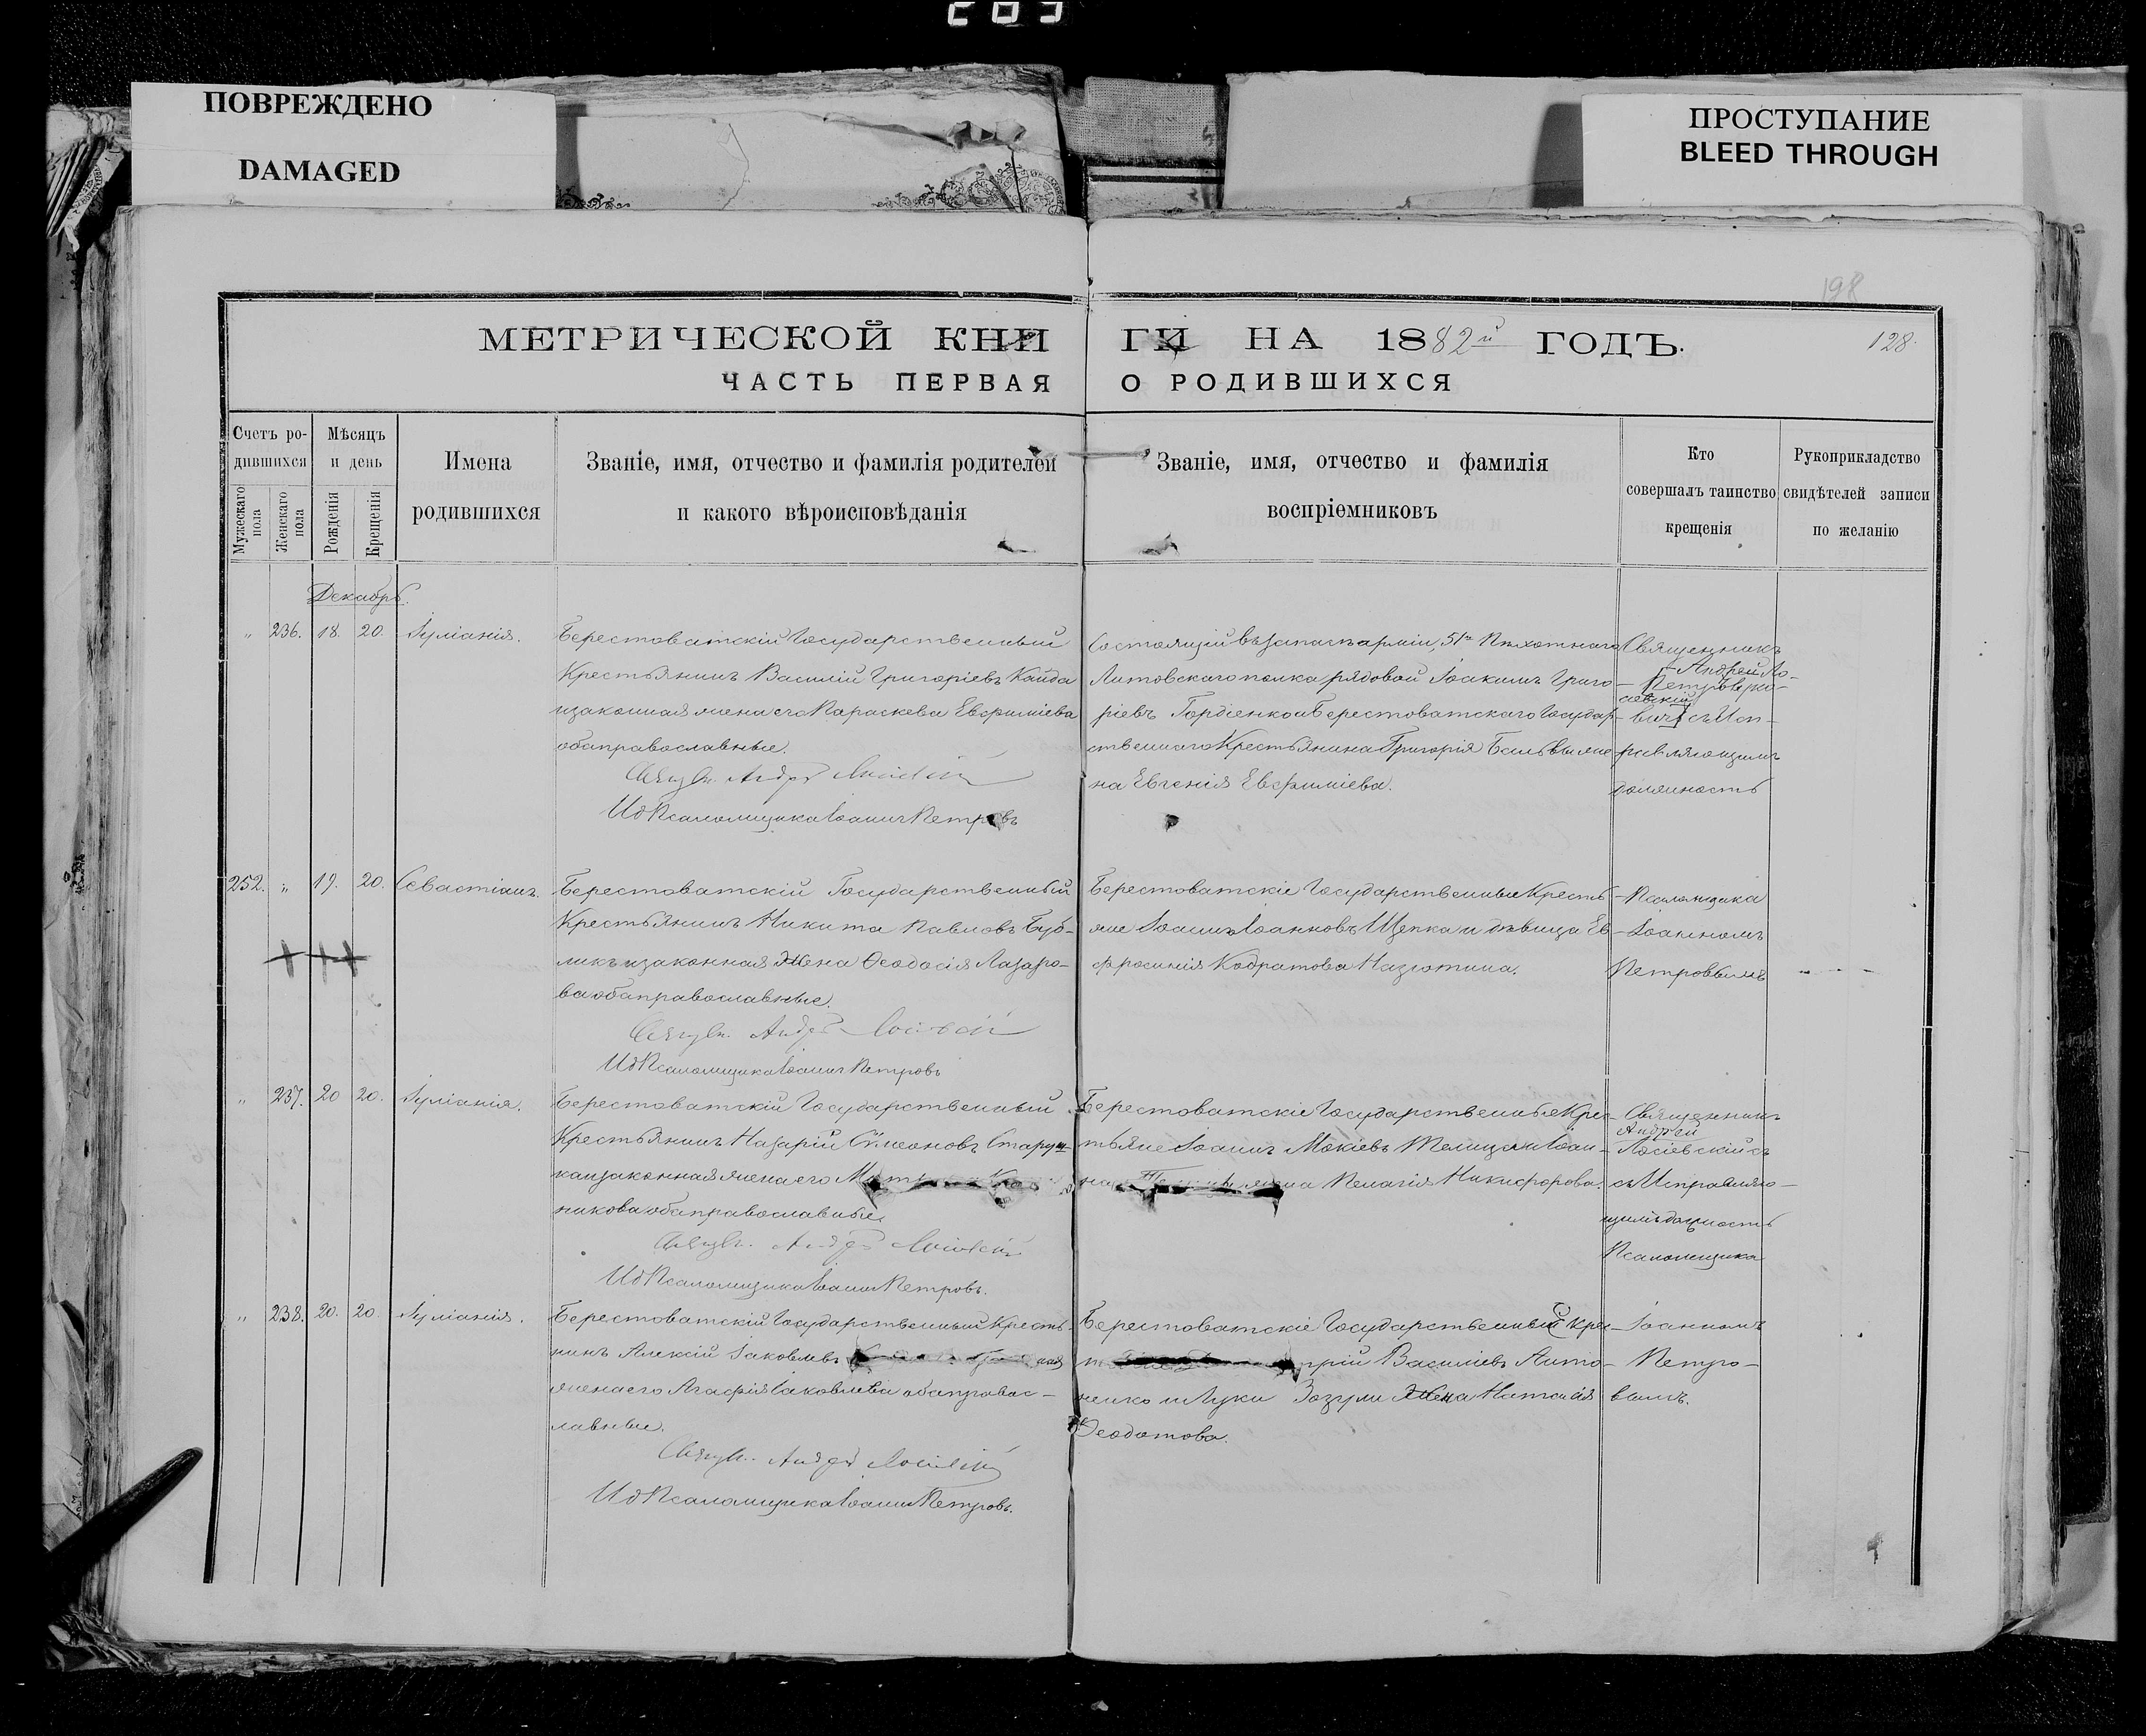 203
ПОВРЕЖДЕНО
DAMAGED
ПРОСТУПАНИЕ
BLEED THROUGH
198
МЕТРИЧЕСКОЙ КНИГИ НА 1882й ГОДЪ.
128.
ЧАСТЬ ПЕРВАЯ О РОДИВШИХСЯ
Счетъ родившихся
Мужескаго пола
Женскаго пола
Мѣсяцъ и день
Рожденія
Крещенія
Имена
родившихся
Званіе, имя, отчество и фамилія родителей
и какого вѣроисповѣданія
Званіе, имя, отчество и фамилія
воспріемниковъ
Кто
совершалъ таинство
крещенія
Рукоприкладство
свидѣтелей записи
по желанію
Декабрь.
" 236. 18. 20. Іуліанія.
Берестоватскій Государственный
Крестьянинъ Василій Григоріевъ Кайда
и законная жена его Параскева Евфиміева
оба православные.
Андрей
И д Псаломщика Іоаннъ Петровъ
Состоящій въ запасѣ арміи, 51го Пѣхотнаго
Литовскаго полка рядовой Іоакимъ Григо-
ріевъ Гордіенко и Берестоватскаго Государ-
ственнаго Крестьянина Григорія жена
на Евгенія Евфиміева.
Священникъ
Андрей Ло-
сіевскій
съ Исп-
равляющимъ
должность
252. " 19. 20. Севастіанъ.
Берестоватскій Государственный
Крестьянинъ Никита Павловъ Буб-
ликъ и законная жена Ѳеодосія Лазаро-
ва оба православные.
Андрей
И д Псаломщика Іоаннъ Петровъ
Берестоватскіе Государственные Кресть-
яне Іоаннъ Іоанновъ Щепка и дѣвица Ев-
фросинія Кодратова
Псаломщика
Іоанномъ
Петровымъ
" 237. 20 20. Іуліанія.
Берестоватскій Государственный
Крестьянинъ Назарій Сѵмеоновъ Старуш-
ка и законная жена его
никова оба православные.
Андрей
И д Псаломщика Іоаннъ Петровъ.
Берестоватскіе Государственные Крес-
тьяне Іоаннъ Мокіевъ и Іоан-
на жена Пелагія Никифорова.
Священникъ
Андрей
Лосіевскій съ
съ Исправляю-
щимъ должность
Псаломщика
" 238. 20. 20. Іуліанія.
Берестоватскій Государственный Кресть-
нинъ Алексій Іаковлевъ
жена его Агафія Іаковлева оба правос-
лавные.
Андрей
И д Псаломщика Іоаннъ Петровъ.
Берестоватскіе Государственный Крес-
Василіевъ Анто-
ненко и Луки Зозули жена Наталія
Ѳеодотова.
Іоанномъ
Петро-
вымъ.